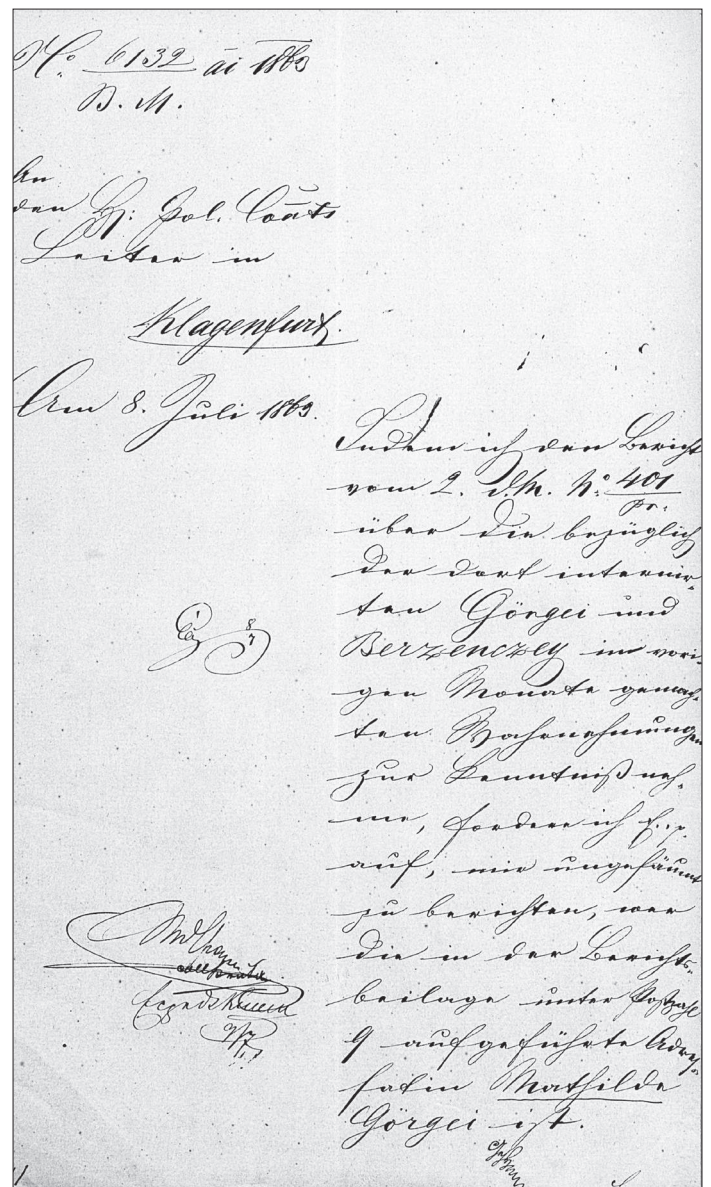 No. 6132 ai 1863
B. M.
An
den H: Pol. Coats
Leiter in
Klagenfurt.
Am 8. Juli 1863.
Indem ich den Bericht
vom 2. d. M. No. 401
pr.
über die bezüglich
der dort internir-
ten Görgei und
Berzenczey im vori-
gen Monate gemach-
ten Wahrnehmungen
zur Kenntniß neh-
me, fordere ich E.
auf, mir ungesäumt
zu berichten, wer
die in der Berichts-
beilage unter Postzahl
9 aufgeführte Adres-
satin Mathilde
Görgei ist.
8
7
9/7